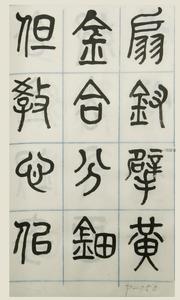 扇釵擘黃
金合分鈿
但教心似